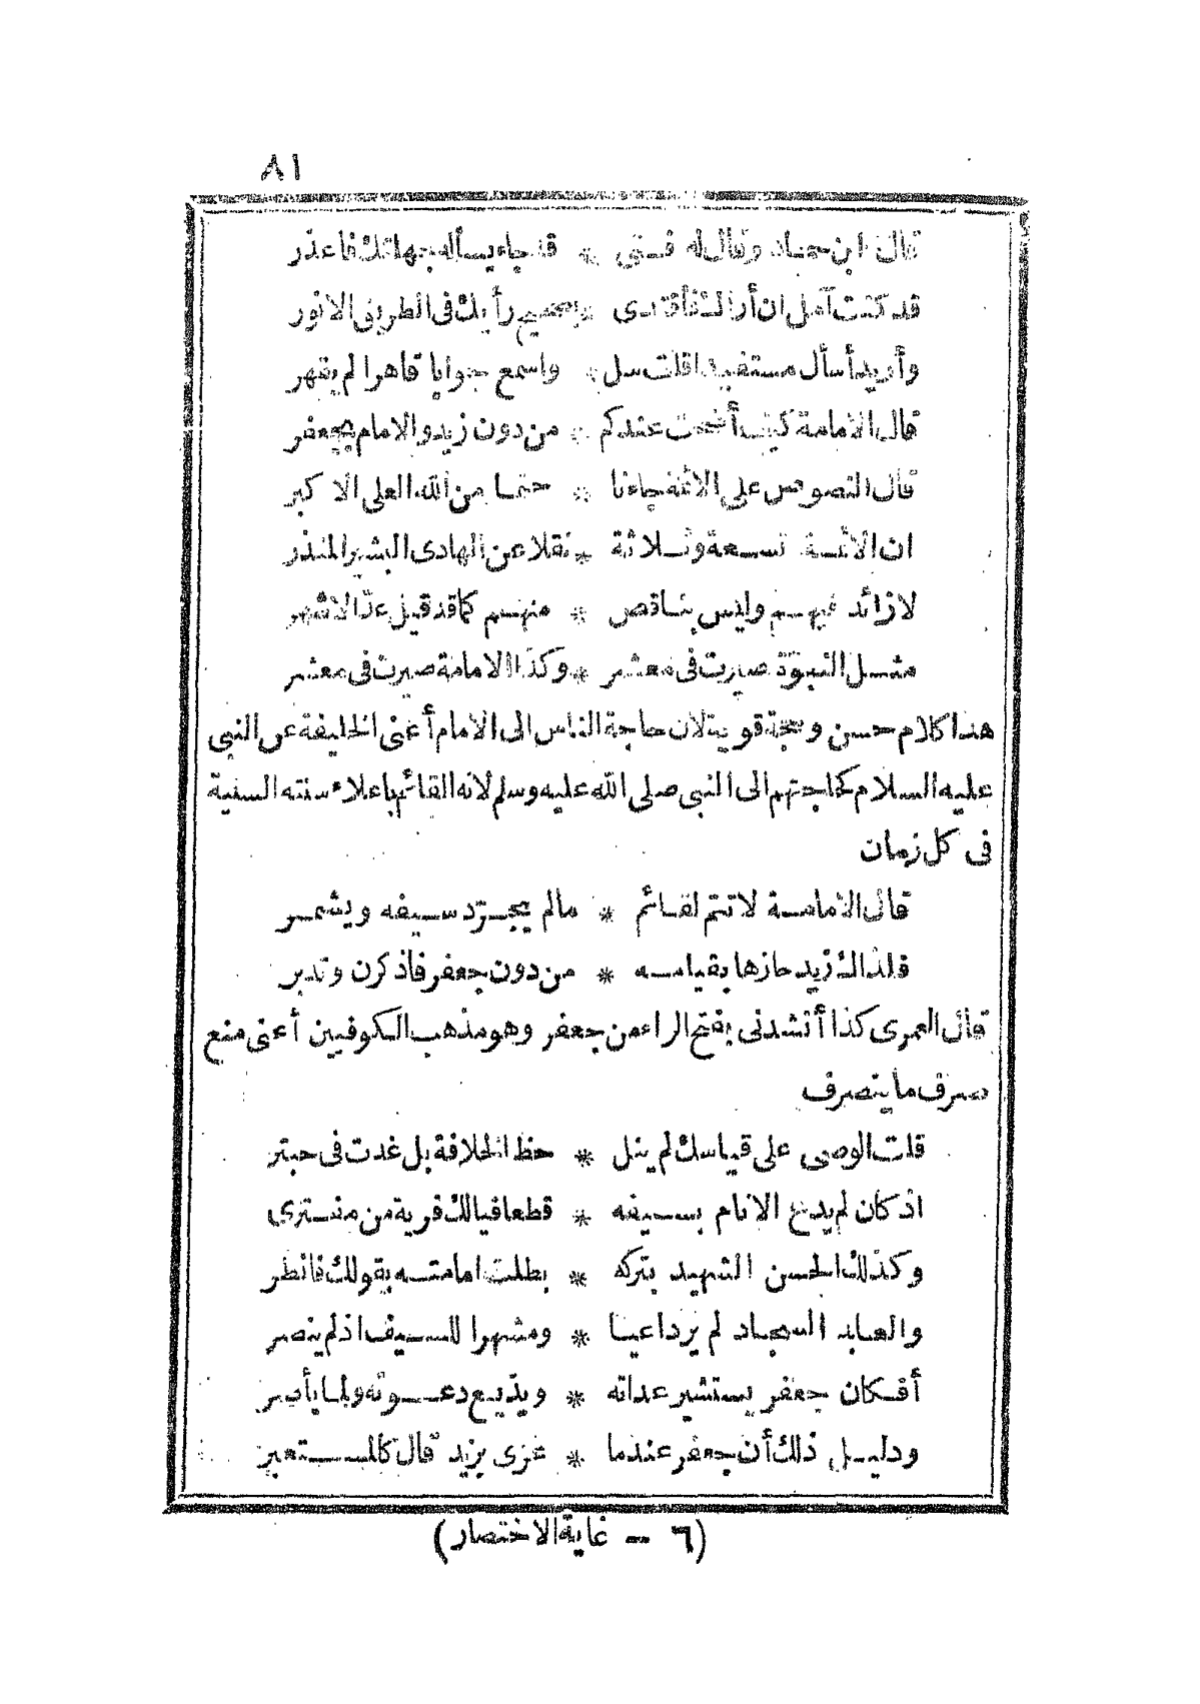 ٨١
قال ابن حماد وقال له فتى * قد جاء يسأله بجهالتك فاعذر
قد كنت آمل ان أراك فأقتدى * بصحيح رأيك فى الطريق الانور
وأريد أسأل مستفيدا قلت سل * واسمع جوابا قاهرا لم يقهر
قال الامامة كيف أضحت عندكم * من دون زيد والامام بجعفر
قال النصوص على الائمة جاءنا * حتما من الله العلى الاكبر
ان الائمة تسعة وثلاثة * نقلا عن الهادى البشير المنذر
لازائد فيهم وليس بناقص * منهم كما قد قيل عدّ الاشهر
مثل النبوّة صيرت فى معشر * وكذا الامامة صيرت فى معشر
هذا كلام حسن وحجة قوية لان حاجة الناس الى الامام أعنى الخليفة عن النبى
عليه السلام كحاجتهم الى النبى صلى الله عليه وسلم لانه القائم باعلاء سنته السنية
فى كل زمان
قال الامامة لا تتم لقائم * مالم يجرّد سيفه ويشمر
فلذاك زيد حازها بقيامه * من دون جعفر فاذكرن وتدبر
قال العمرى كذا أنشدنى بفتح الراء من جعفر وهو مذهب الكوفيين أعنى منع
صرف ما ينصرف
قلت الوصى على قياسك لم ينل * حظ الخلافة بل غدت فى حبتر
اذ كان لم يدع الانام بسيفه * قطعا فيالك فرية من مفترى
وكذلك الحسن الشهيد بتركه * بطلت امامته بقولك فانظر
والعابد السجاد لم يرداعيا * ومشهرا للسيف اذ لم ينصر
أفكان جعفر يستشير عداته * ويذيع دعوته ولما يأمر
ودليل ذلك أن جعفر عندما * عزى بزيد قال كالمستعبر
(٦ - غاية الاختصار)